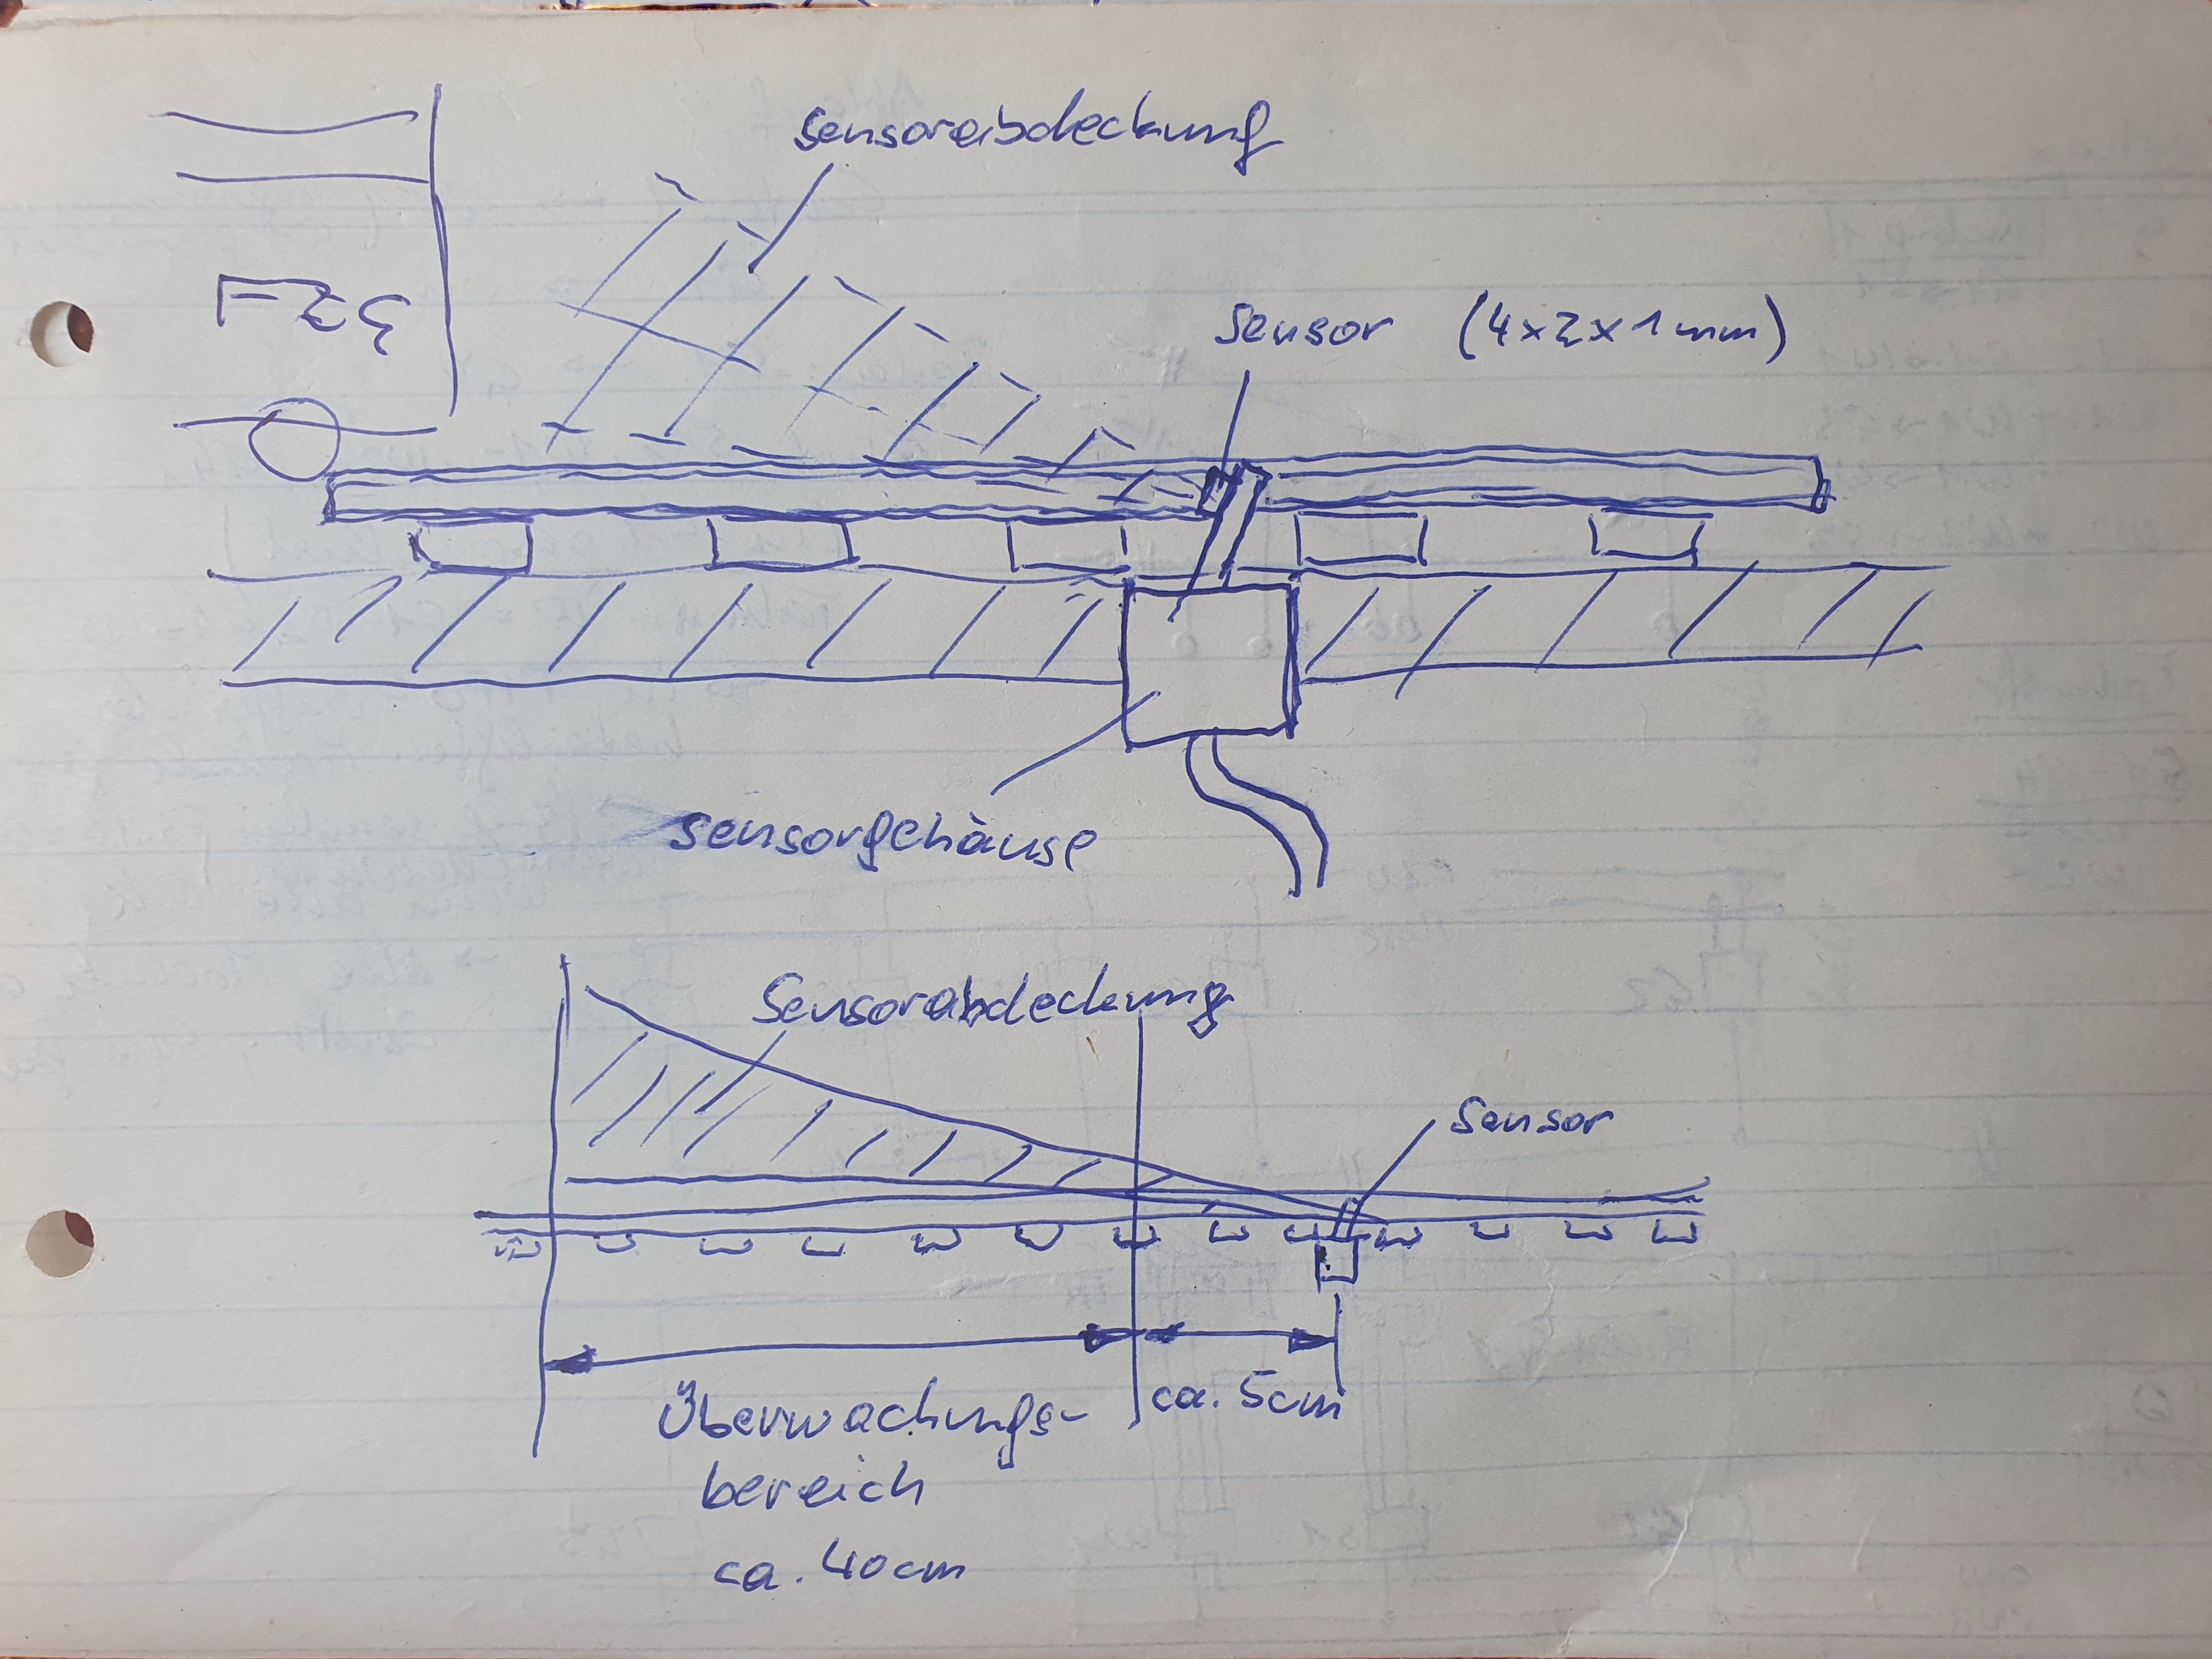 Sensorabdeckung
FZG
Sensor (4x2x1mm)
Sensorgehäuse
Sensorabdeckung
Sensor
Überwachungs-
bereich
ca. 40cm
ca. 5cm